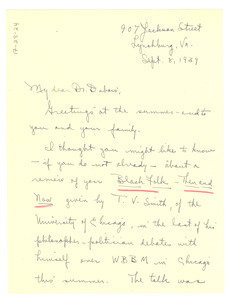 907 Jackson Street
Lynchburg, Va.
Sept. 8, 1939
My dear Dr. Dubois,
Greetings at the summer-end to
you and your family.
I thought you might like to know –
if you do not already – about a
review of your Black Folk – Then and
Now given by T. V. Smith, of the
University of Chicago, in the best of his
philosopher – politician debates with
himself over W B B M in Chicago
this summer. The talk was